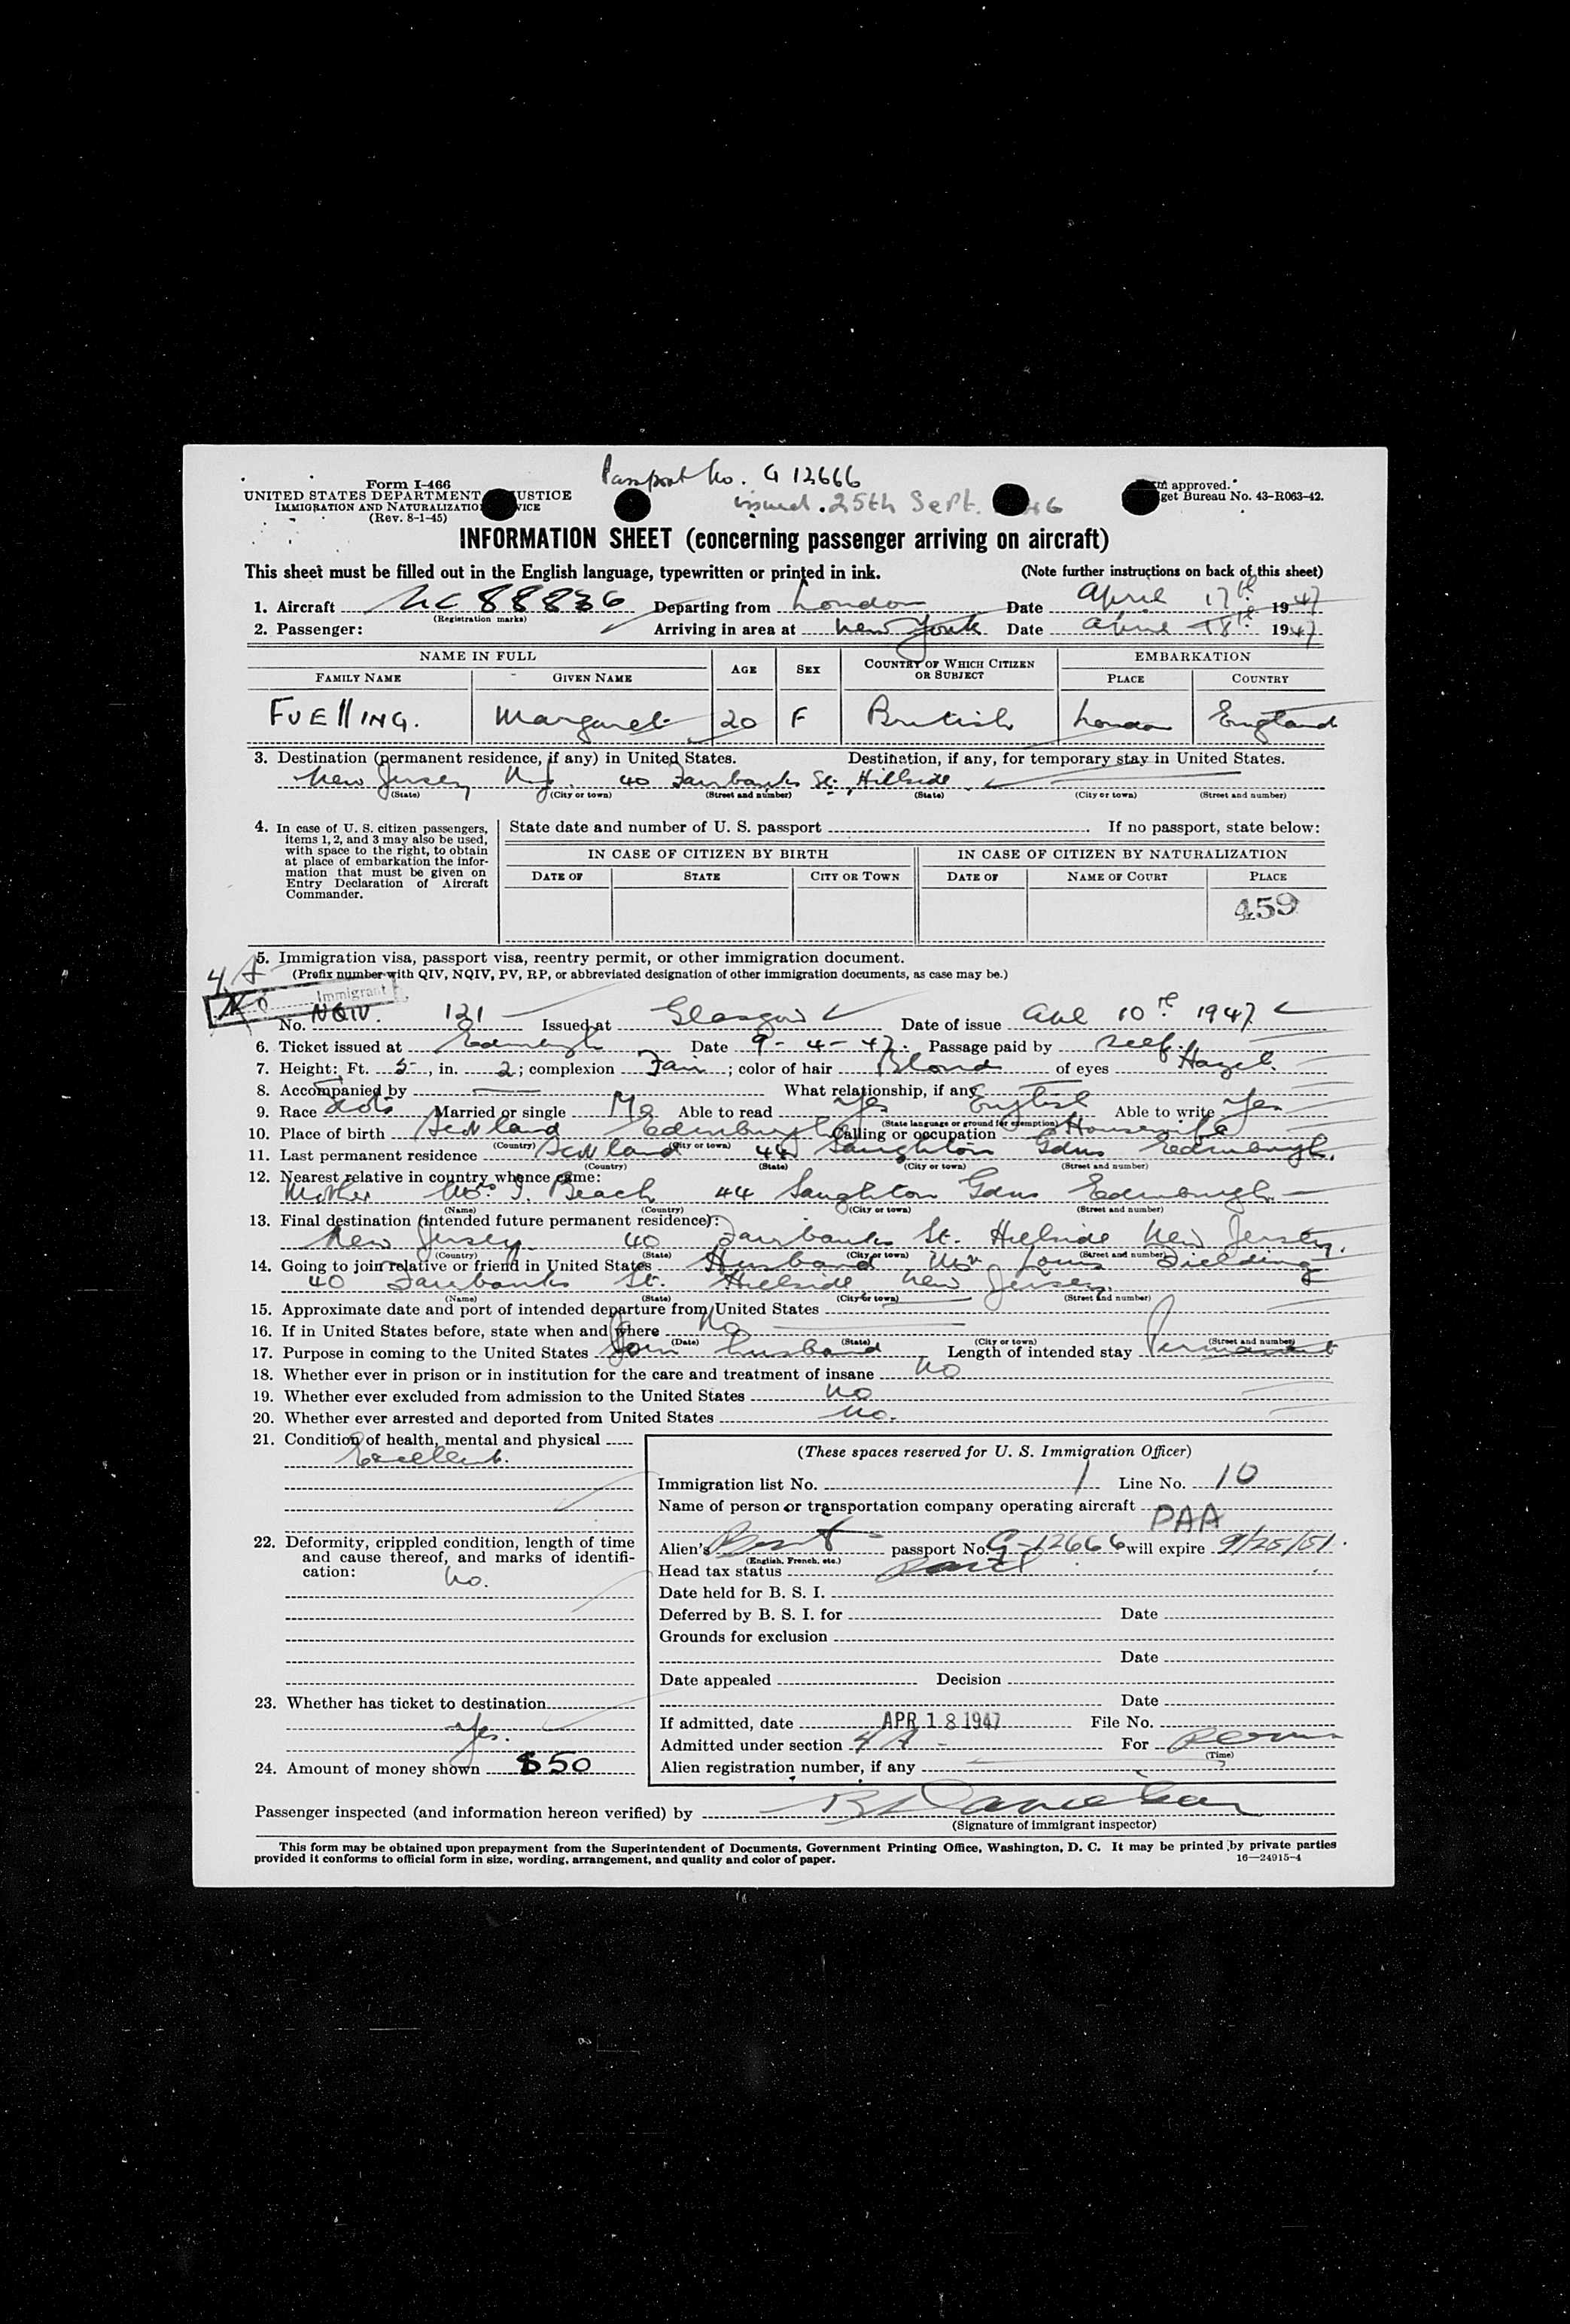 Passport No. G 12666
issued. 25th Sept. 46
Form I-466
UNITED STATES DEPARTMENT USTICE
IMMIGRATION AND NATURALIZATIO VICE
(Rev. 8-1-45)
m approved.
get Bureau No. 43-R063-42.
INFORMATION SHEET (concerning passenger arriving on aircraft)
This sheet must be filled out in the English language, typewritten or printed in ink. (Note further instructions on back of this sheet)
1. Aircraft NC 88836 Departing from London Date April 17th 1947
(Registration marks)
2. Passenger: Arriving in area at New York Date April 18th 1947
NAME IN FULL AGE SEX COUNTRY OF WHICH CITIZEN OR SUBJECT EMBARKATION
FAMILY NAME GIVEN NAME PLACE COUNTRY
FUEllING. Margaret 20 F British London England
3. Destination (permanent residence, if any) in United States. Destination, if any, for temporary stay in United States.
New Jersey N.J. 40 Fairbanks St., Hillside
(State) (City or town) (Street and number) (State) (City or town) (Street and number)
4. In case of U. S. citizen passengers, items 1, 2, and 3 may also be used, with space to the right, to obtain at place of embarkation the information that must be given on Entry Declaration of Aircraft Commander.
State date and number of U. S. passport If no passport, state below:
IN CASE OF CITIZEN BY BIRTH IN CASE OF CITIZEN BY NATURALIZATION
DATE OF STATE CITY OR TOWN DATE OF NAME OF COURT PLACE
459
5. Immigration visa, passport visa, reentry permit, or other immigration document.
(Prefix number with QIV, NQIV, PV, RP, or abbreviated designation of other immigration documents, as case may be.)
Immigrant
No. NQIV. 121 Issued at Glasgow Date of issue 10th 1947.
6. Ticket issued at Edinburgh Date 9-4-47. Passage paid by self.
7. Height: Ft. 5, in. 2; complexion Fair; color of hair Blond of eyes Hazel.
8. Accompanied by What relationship, if any
9. Race Scots Married or single Able to read Yes English Able to write Yes
(State language or ground for exemption)
10. Place of birth Scotland Edinburgh Calling or occupation Housewife
(Country) (City or town)
11. Last permanent residence Scotland 44 Saughton Gdns Edinburgh.
(Country) (State) (City or town) (Street and number)
12. Nearest relative in country whence came:
Mother Mrs. J. Beach 44 Saughton Gdns Edinburgh
(Name) (Country) (City or town) (Street and number)
13. Final destination (intended future permanent residence):
New Jersey. 40 Fairbanks St. Hillside New Jersey.
(Country) (State) (City or town) (Street and number)
14. Going to join relative or friend in United States Husband Mr Louis
40 Fairbanks St. Hillside New Jersey.
(Name) (State) (City or town) (Street and number)
15. Approximate date and port of intended departure from United States
16. If in United States before, state when and where No
(Date) (State) (City or town) (Street and number)
17. Purpose in coming to the United States Join husband Length of intended stay Permanent
18. Whether ever in prison or in institution for the care and treatment of insane No
19. Whether ever excluded from admission to the United States No
20. Whether ever arrested and deported from United States No.
21. Condition of health, mental and physical
Excellent.
22. Deformity, crippled condition, length of time and cause thereof, and marks of identification:
No.
23. Whether has ticket to destination
Yes.
24. Amount of money shown $50
(These spaces reserved for U. S. Immigration Officer)
Immigration list No. 1 Line No. 10
Name of person or transportation company operating aircraft
PAA
Alien's passport No. G-12666 will expire 9/25/51.
(English, French, etc.)
Head tax status
Date held for B. S. I.
Deferred by B. S. I. for Date
Grounds for exclusion
Date
Date appealed Decision
Date
If admitted, date APR 18 1947 File No.
Admitted under section 4A For Perm
(Time)
Alien registration number, if any
Passenger inspected (and information hereon verified) by
(Signature of immigrant inspector)
This form may be obtained upon prepayment from the Superintendent of Documents, Government Printing Office, Washington, D. C. It may be printed by private parties
provided it conforms to official form in size, wording, arrangement, and quality and color of paper. 16—24915-4